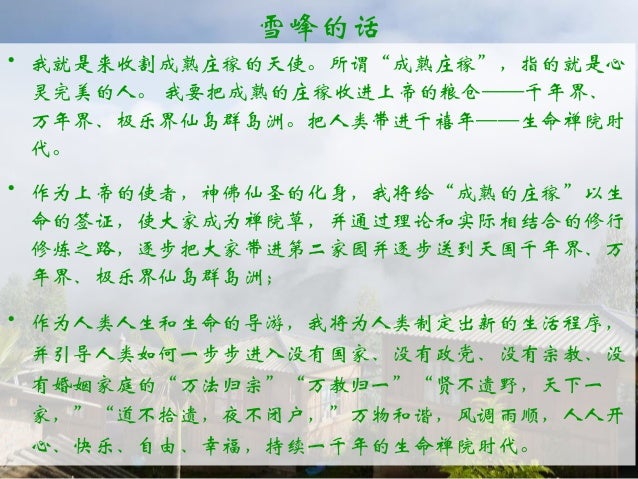 雪峰的话
• 我就是来收割成熟庄稼的天使。所谓“成熟庄稼”，指的就是心
灵完美的人。 我要把成熟的庄稼收进上帝的粮仓——千年界、
万年界、极乐界仙岛群岛洲。把人类带进千禧年——生命禅院时
代。
• 作为上帝的使者，神佛仙圣的化身，我将给“成熟的庄稼”以生
命的签证，使大家成为禅院草，并通过理论和实际相结合的修行
修炼之路，逐步把大家带进第二家园并逐步送到天国千年界、万
年界、极乐界仙岛群岛洲；
• 作为人类人生和生命的导游，我将为人类制定出新的生活程序，
并引导人类如何一步步进入没有国家、没有政党、没有宗教、没
有婚姻家庭的“万法归宗”“万教归一”“贤不遗野，天下一
家，”“道不拾遗，夜不闭户，”万物和谐，风调雨顺，人人开
心、快乐、自由、幸福，持续一千年的生命禅院时代。